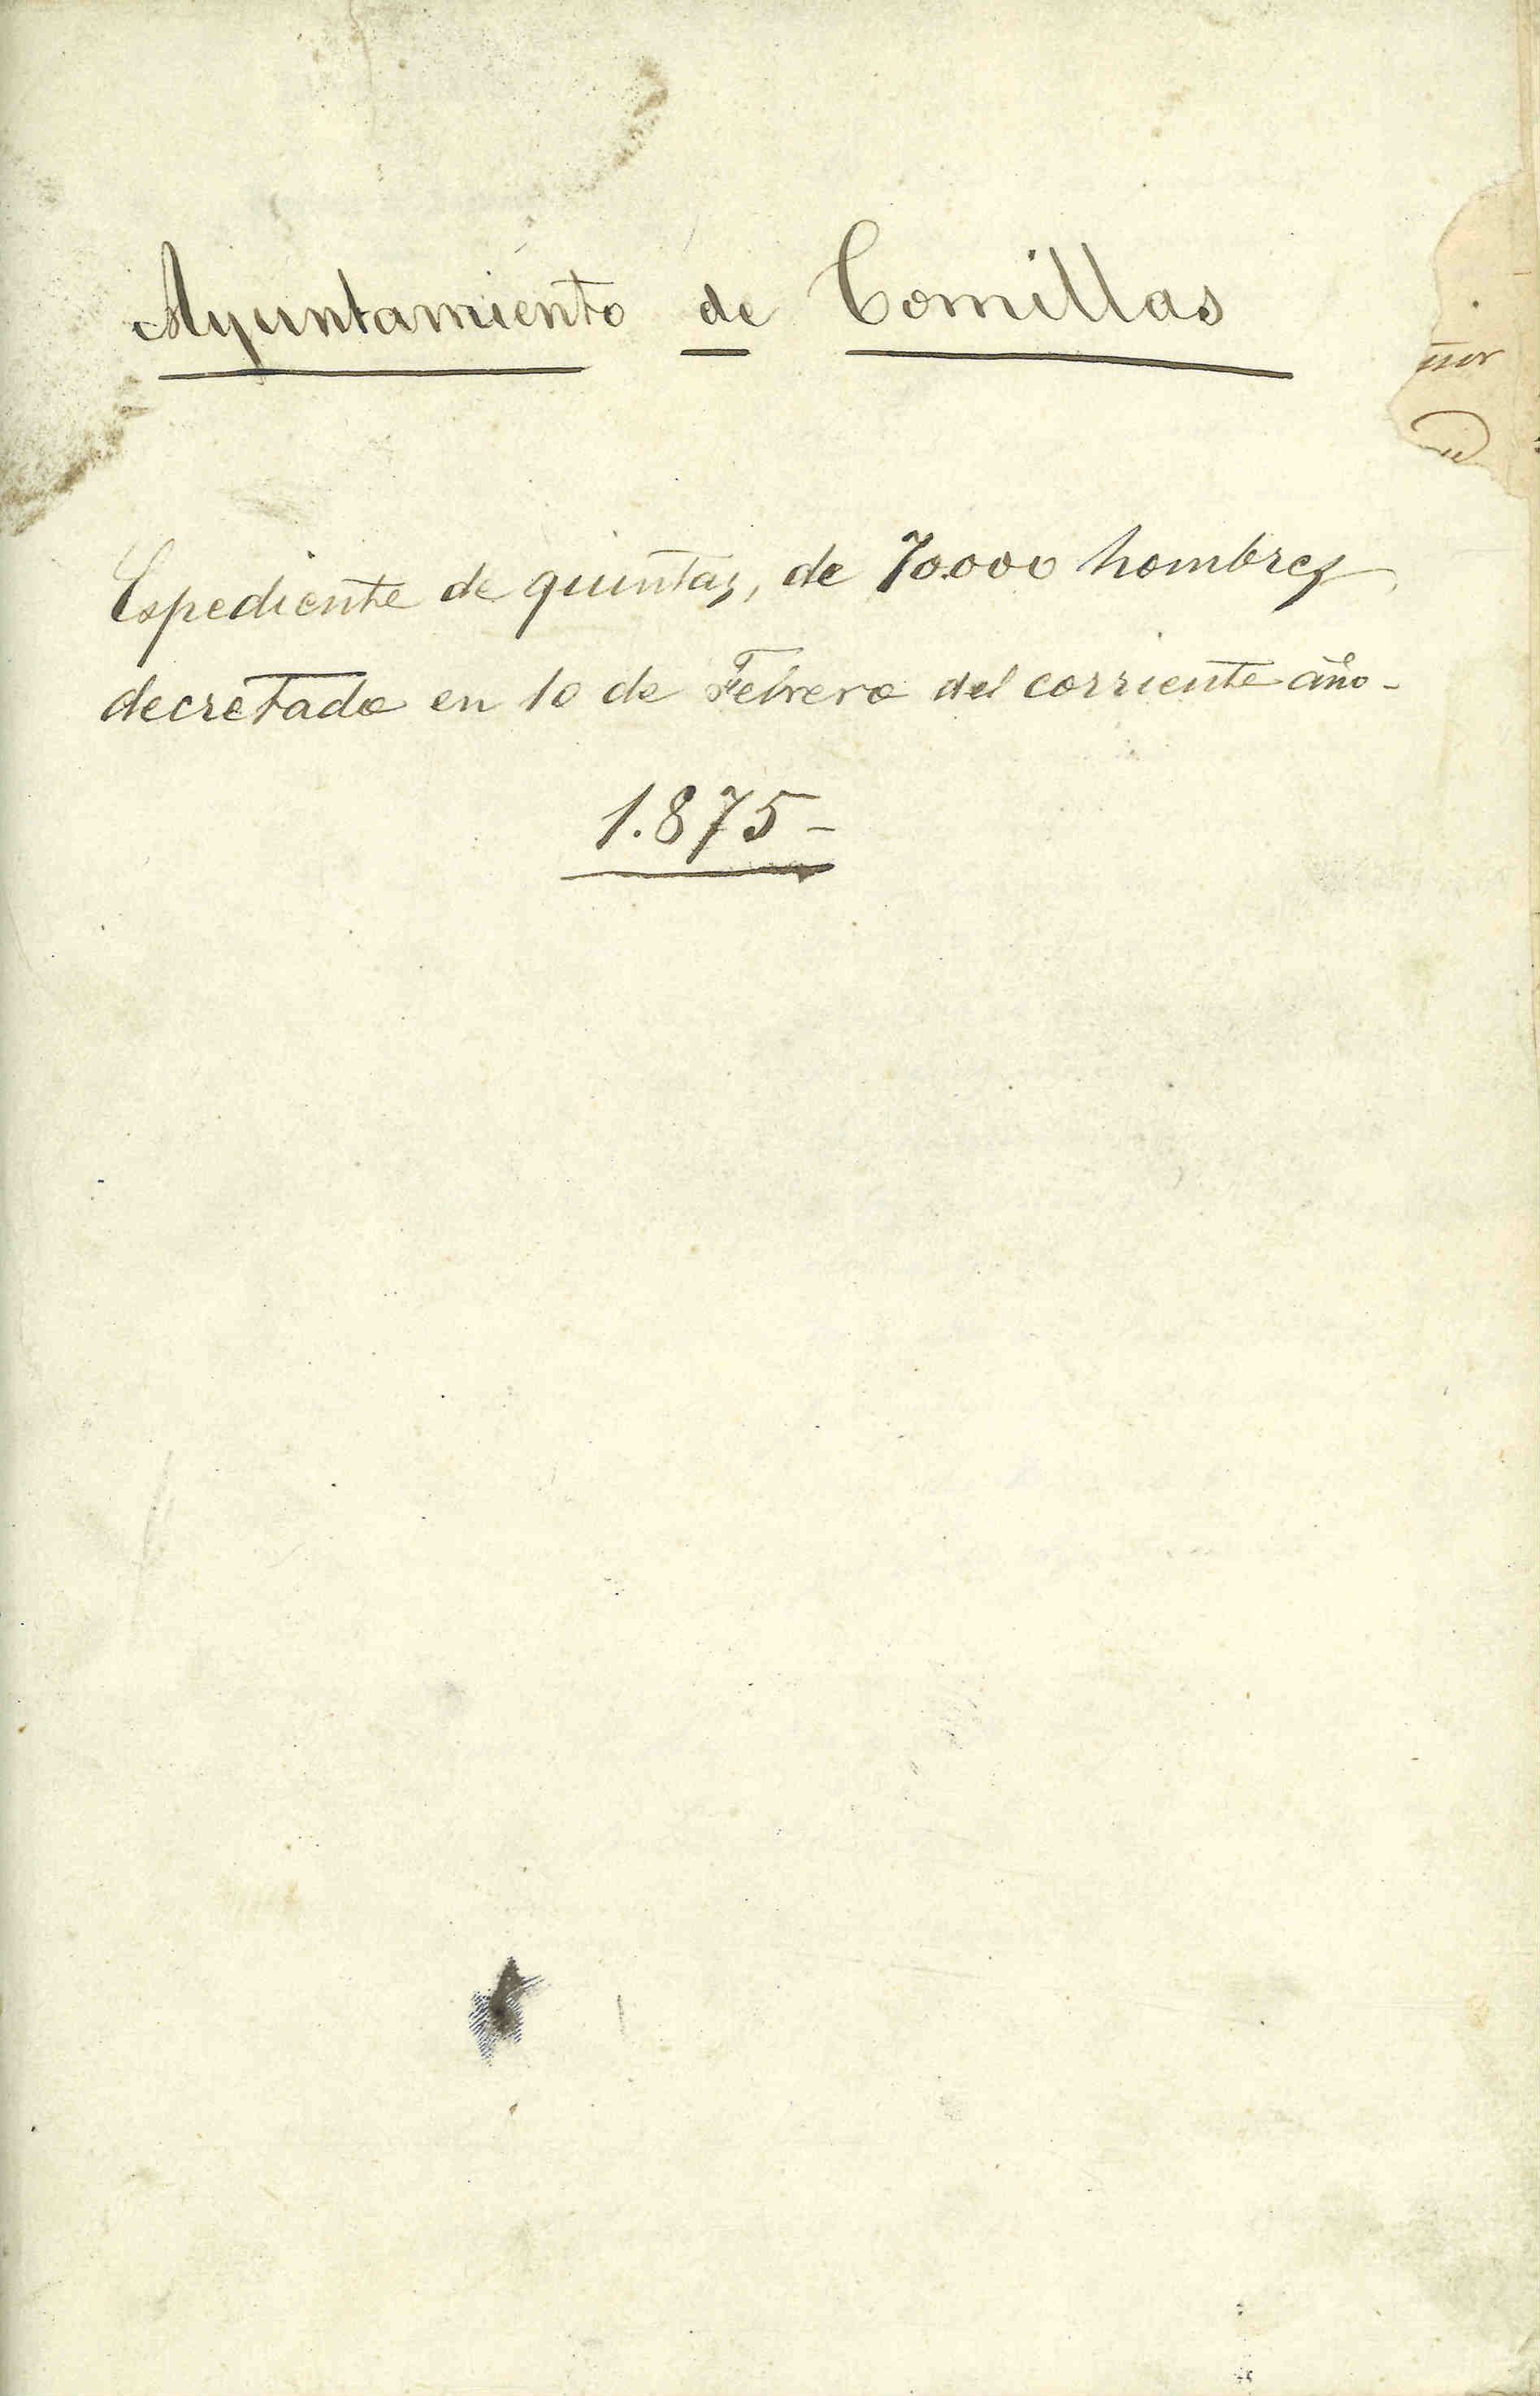 Ayuntamiento de Comillas
Espediente de quintas, de 70.000 hombres
decretado en 10 de Febrero del corriente año-
1.875-